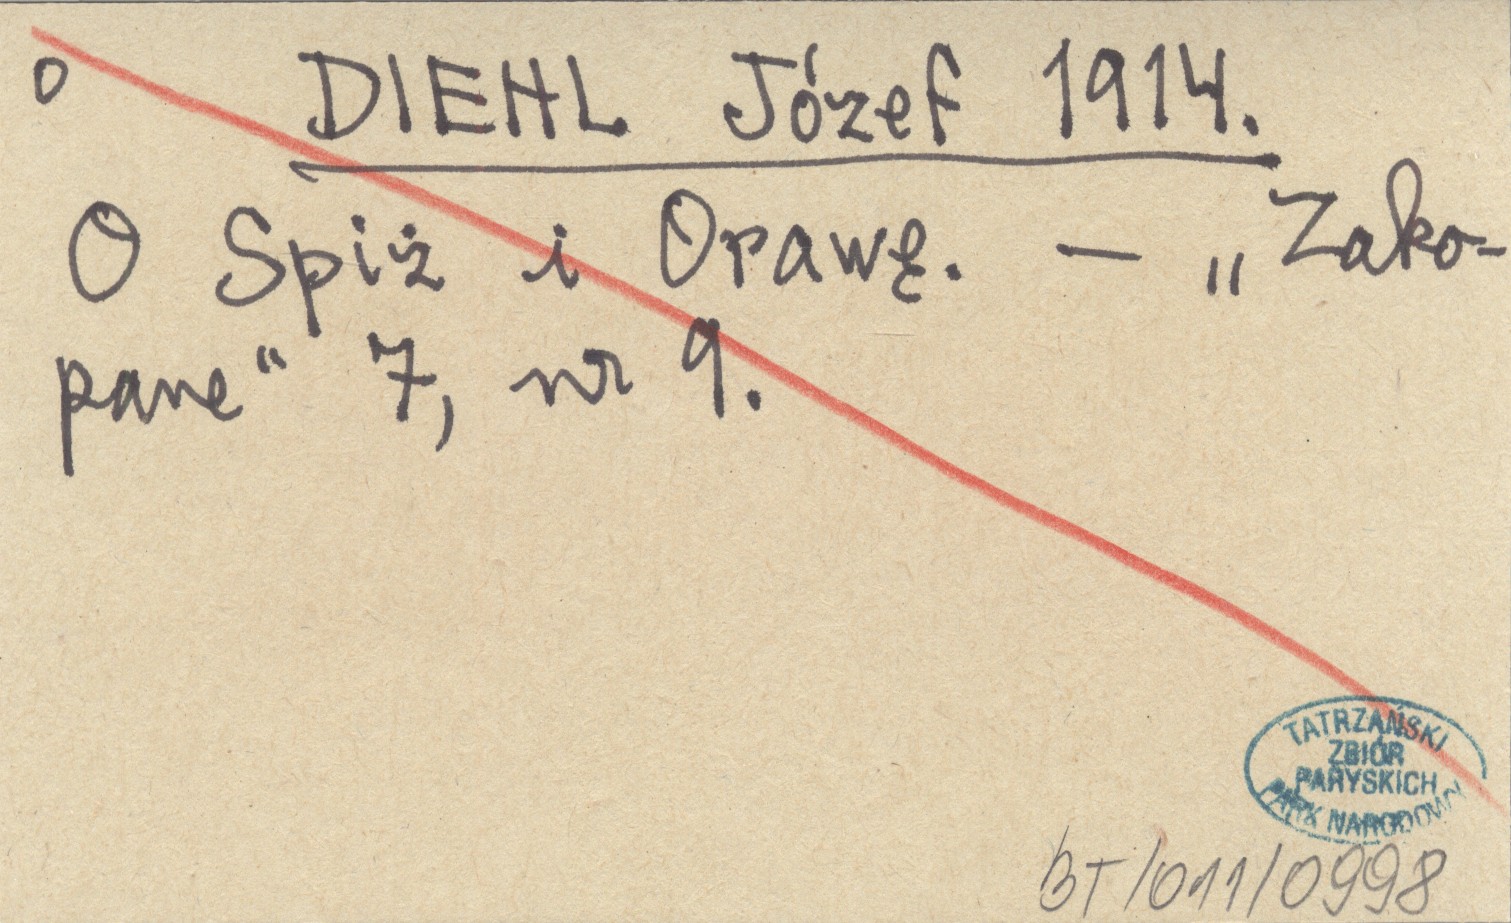 o DIEHL Józef 1914.
O Spiż i Orawę. — „Zako-
pane" 7, nr 9.
TATRZAŃSKI
ZBIÓR
PARYSKICH
PARK NARODOWY
BT/011/0998